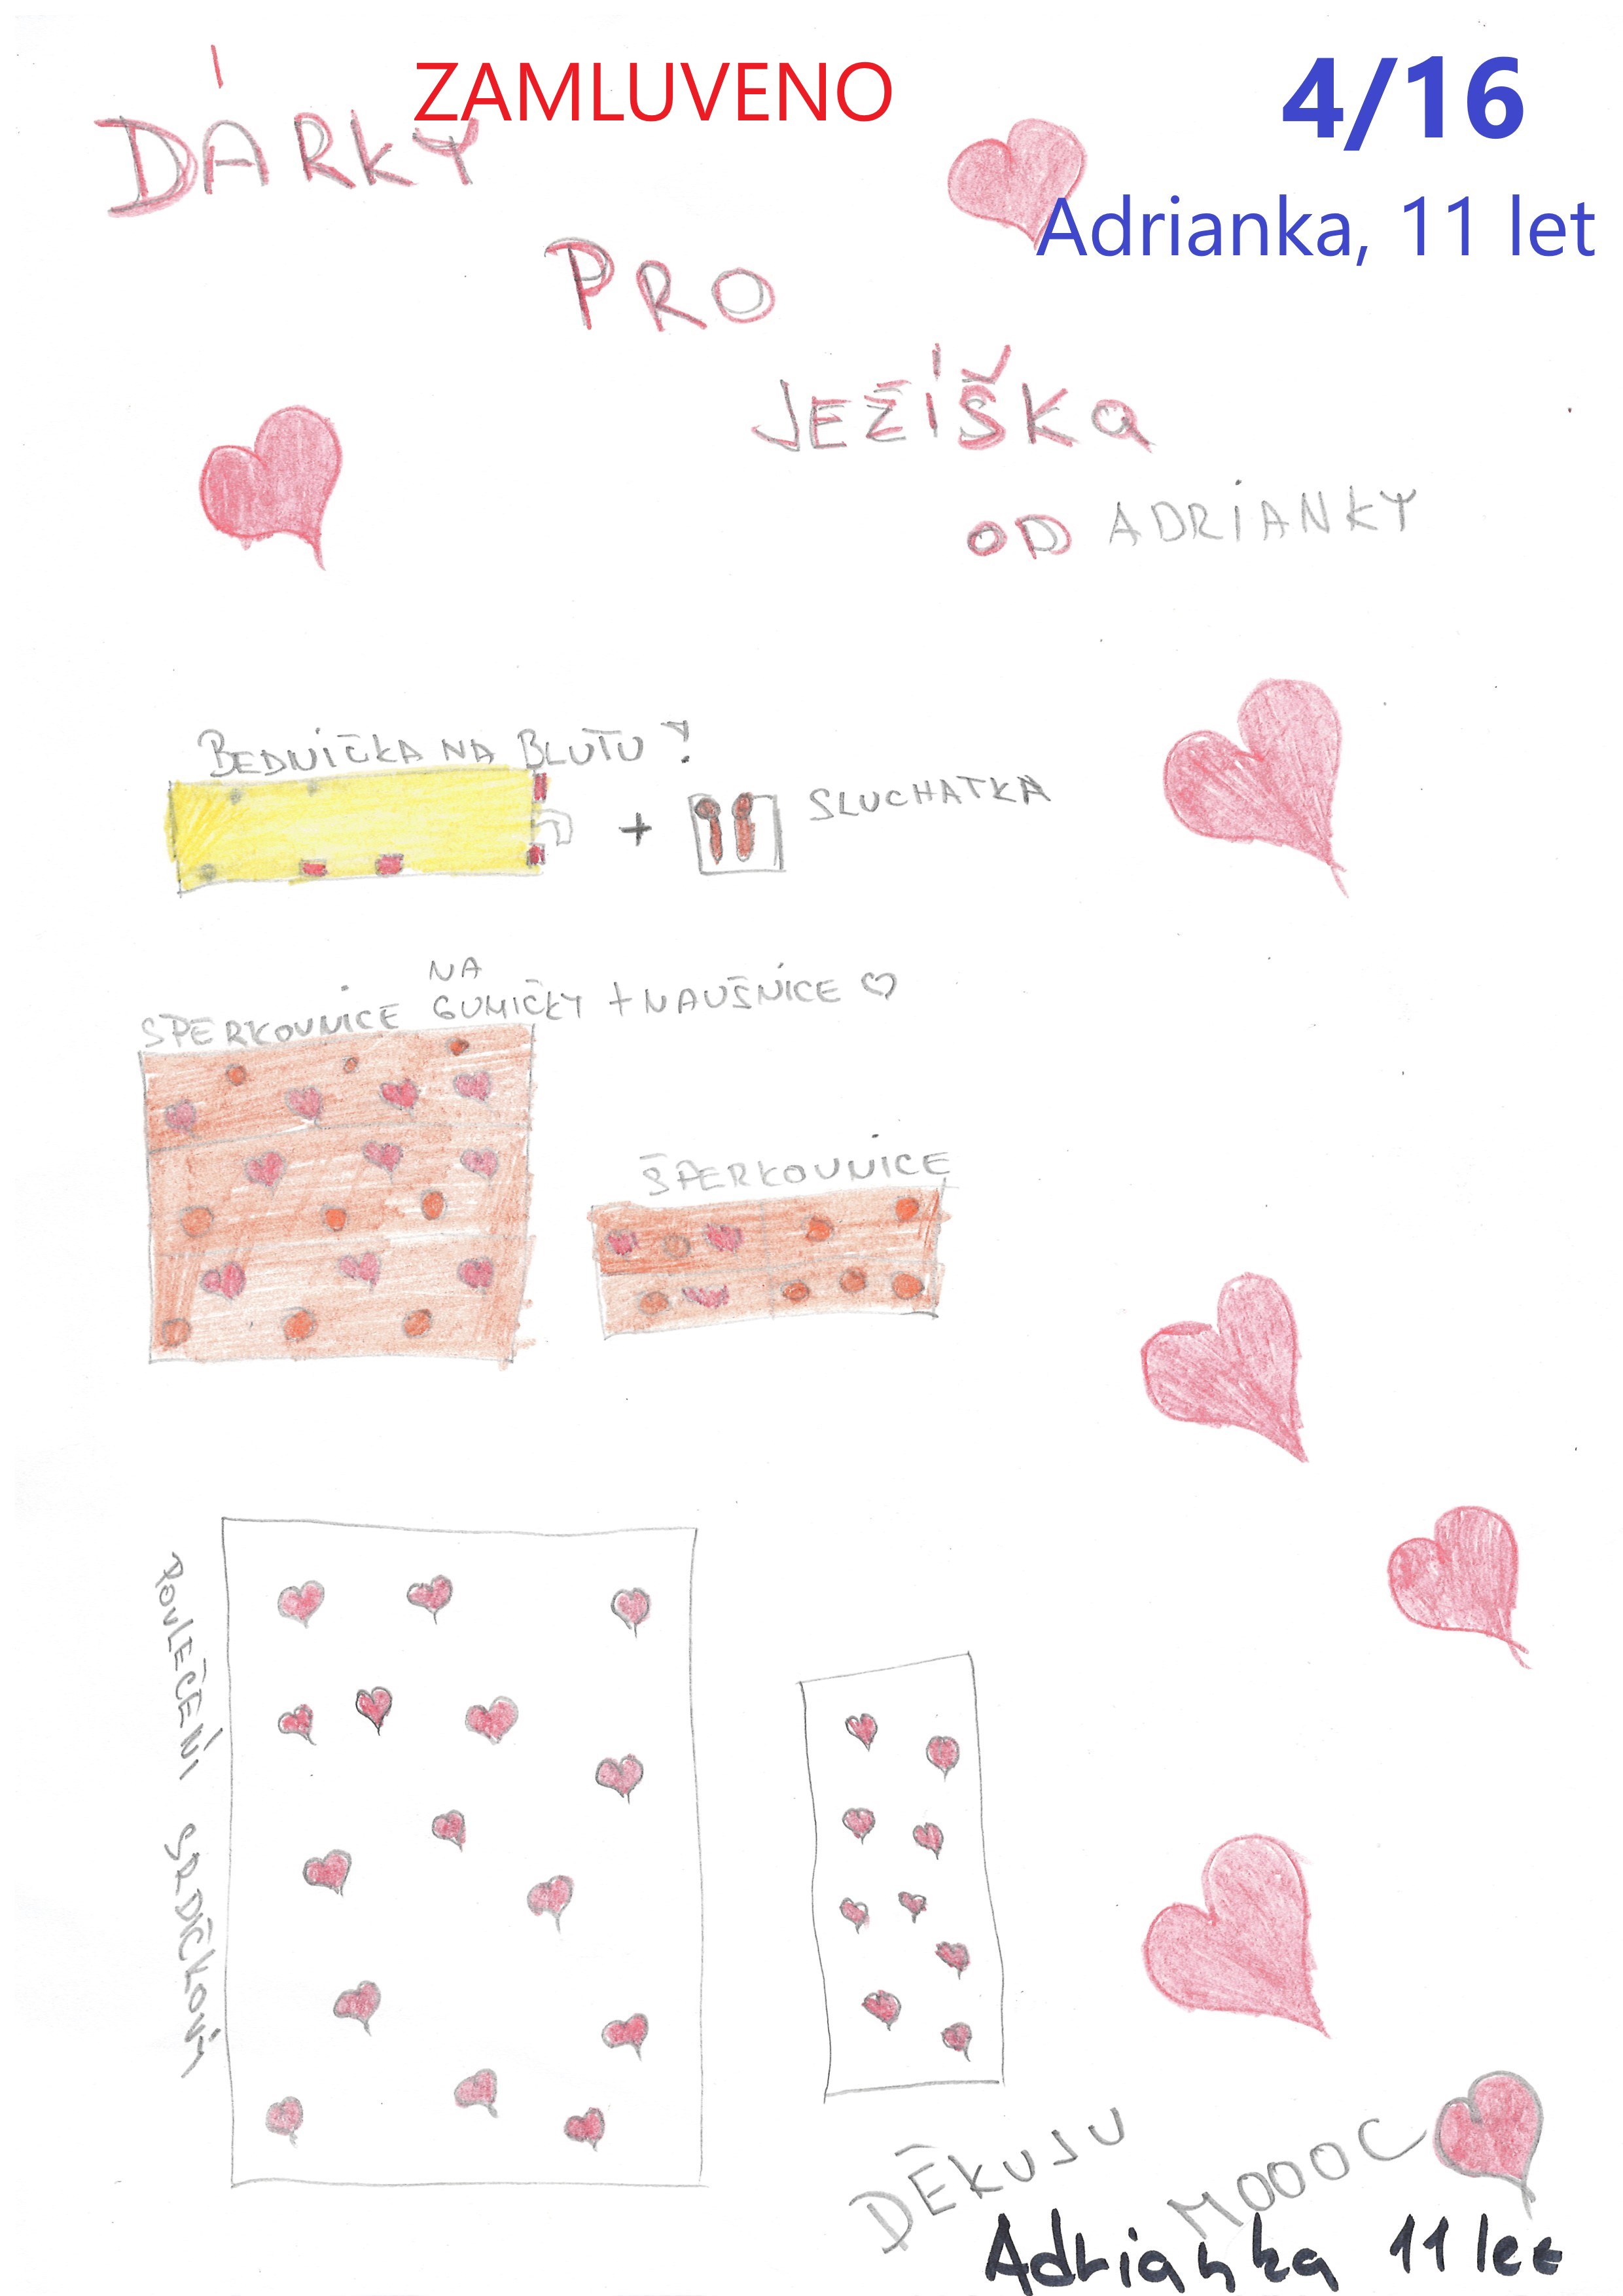 ZAMLUVENO
4/16
Adrianka, 11 let
DÁRKY
PRO
JEŽÍŠKa
OD ADRIANKY
BEDNIČKA NA BLUTU?
+ SLUCHATKA
NA
ŠPERKOVNICE GUMIČKY + NAUŠNICE ♡
ŠPERKOVNICE
POVLEČENÍ SRDÍČKOVÝ
DĚKUJU
MOOOC
Adrianka 11 let